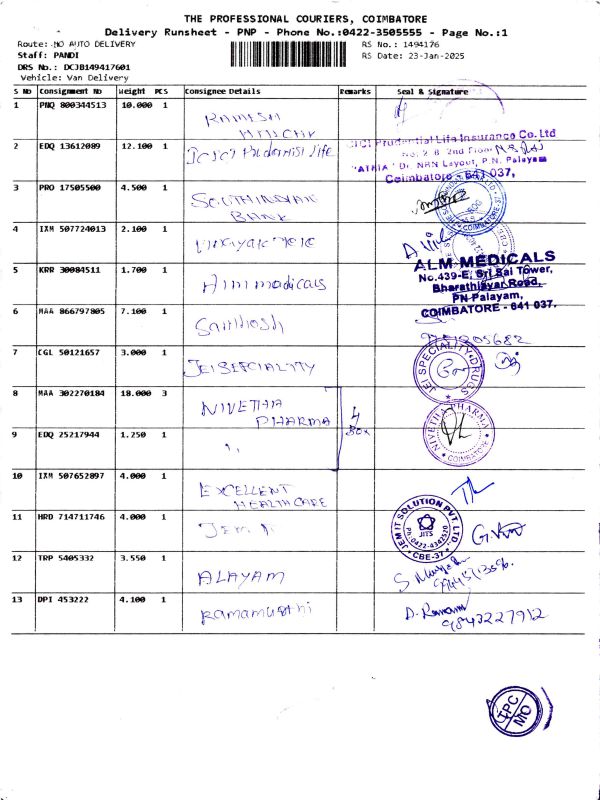 THE PROFESSIONAL COURIERS, COIMBATORE
Delivery Runsheet - PNP - Phone No.:0422-3505555 - Page No.:1
Route: MO AUTO DELIVERY RS No.: 1494176
Staff: PANDI RS Date: 23-Jan-2025
DRS No.: DCJB149417601
Vehicle: Van Delivery
S No Consignment No Weight PCS Consignee Details Remarks Seal & Signature
1 PNQ 800344513 10.000 1 RAMESH
2 EDQ 13612089 12.100 1 Prudential life
ICICI Prudential Life Insurance Co. Ltd
No. 2 B, 2nd Floor
"ATRIA" Dr. NRN Layout, P.N. Palayam
Coimbatore - 641 037,
3 PRO 17505500 4.500 1 SOUTHINDIAN
BANK
4 IXM 507724013 2.100 1
5 KRR 30084511 1.700 1 medicals
ALM MEDICALS
No.439-E, Sri Sai Tower,
Bharathiyar Road,
PN Palayam,
COIMBATORE - 641 037.
6 MAA 866797805 7.100 1 Santhosh
7 CGL 50121657 3.000 1 JEISPECIALITY
JEI SPECIALITY DRUGS
8 MAA 302270184 18.000 3 NIVETHA
PHARMA
4
Box
NIVETHA PHARMA
COIMBATORE
9 EDQ 25217944 1.250 1 "
10 IXM 507652897 4.000 1 EXCELLENT
HEALTH CARE
11 HRD 714711746 4.000 1 Jem
JEM IT SOLUTION PVT. LTD.
JITS
Ph:0422-4342520
CBE-37
12 TRP 5405332 3.550 1 ALAYAM
13 DPI 453222 4.100 1 Ramamurthi
9843227912
TPC
MO